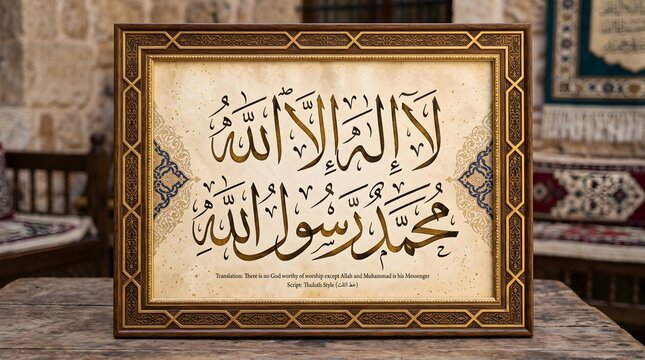 لَآ إِلٰهَ إِلَّا اللّٰهُ
مُحَمَّدٌ رَّسُولُ اللّٰهِ
Translation: There is no God worthy of worship except Allah and Muhammad is his Messenger
Script: Thuluth Style (خط الثلث)